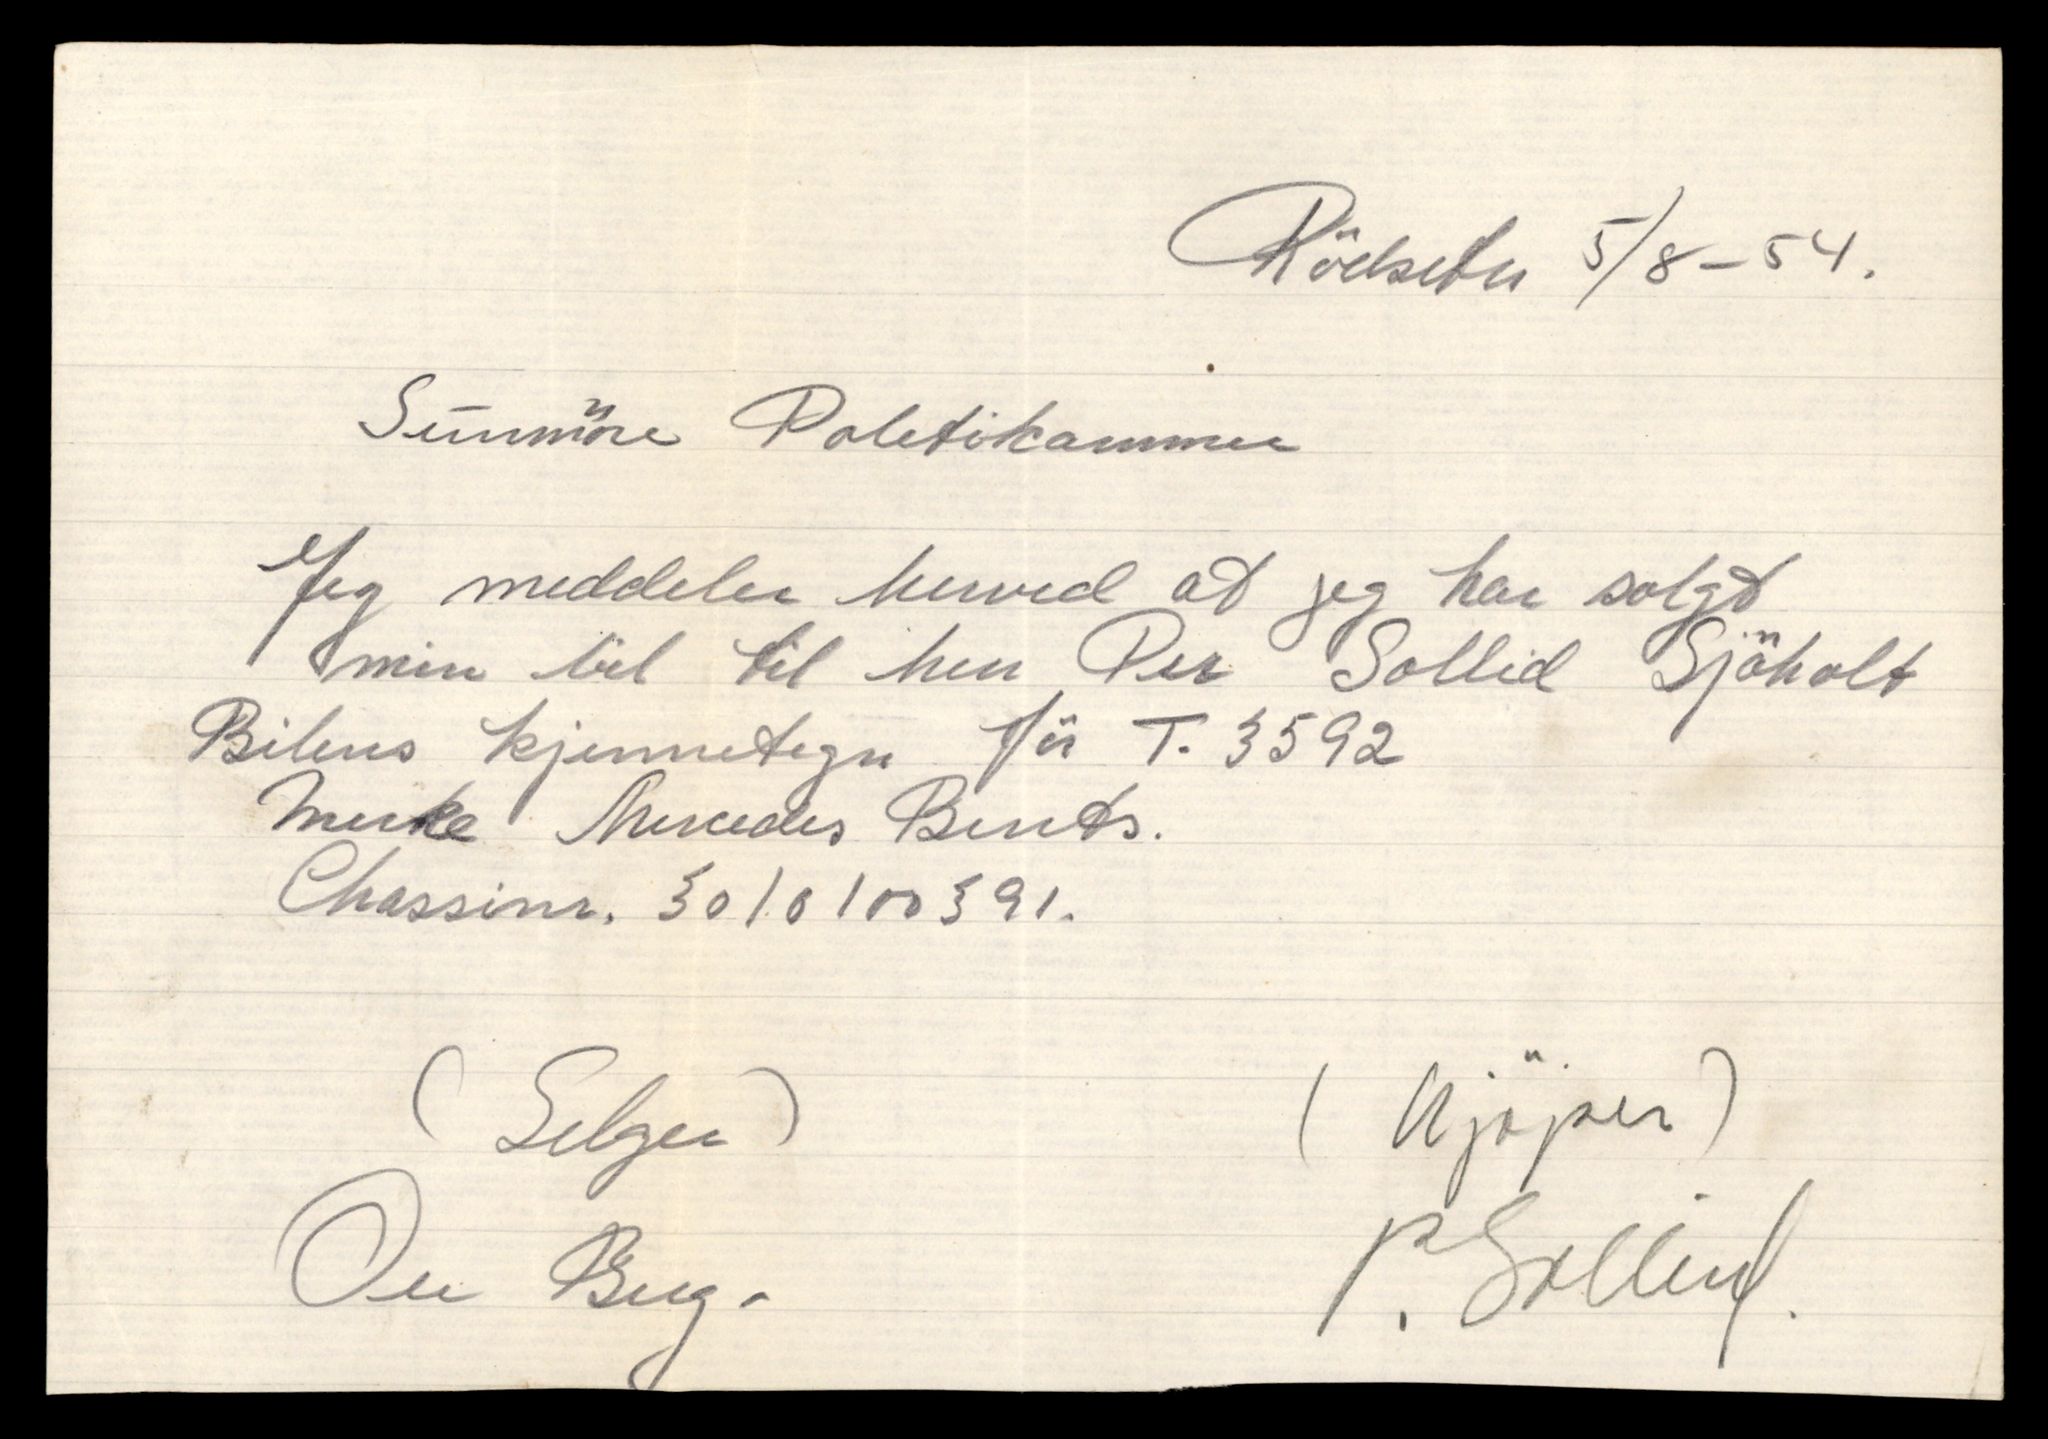 Rödseter 5/8-54.
Sunmöre Poletikammer
Jeg meddeler herved at jeg har solgt
min bil til herr Per Sollid Sjöholt
Bilens kjennetegn för T. 3592
Merke Mercedes Bents.
Chassinr. 3010100391.
(Selger) (Kjöper)
Ove Berg. P. Sollid.